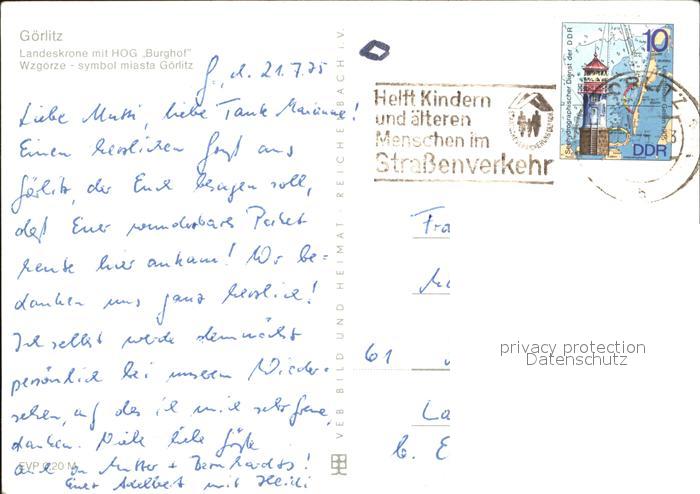 Görlitz
Landeskrone mit HOG „Burghof"
Wzgorze - symbol miasta Görlitz
G., d. 21.7.75
Liebe Mutti, liebe Tante Marianne!
Einen herzlichen Gruß aus
Görlitz, der Euch besagen soll,
daß Euer wunderbares Paket
heute hier ankam! Wir be-
danken uns ganz herzlich!
Ich selbst werde demnächst
persönlich bei unserem Wieder-
sehen, auf das ich mich sehr freue,
danken. Viele liebe Grüße
auch an Mutter + Bernhardts!
Euer Adelbert mit Heidi
EVP 0,20 M
VEB BILD UND HEIMAT · REICHENBACH i.V.
Helft Kindern
und älteren
Menschen im
Straßenverkehr
Seehydrographischer Dienst der DDR
10
DDR
GÖRLITZ
Fra
61
privacy protection
Datenschutz
La
b. E